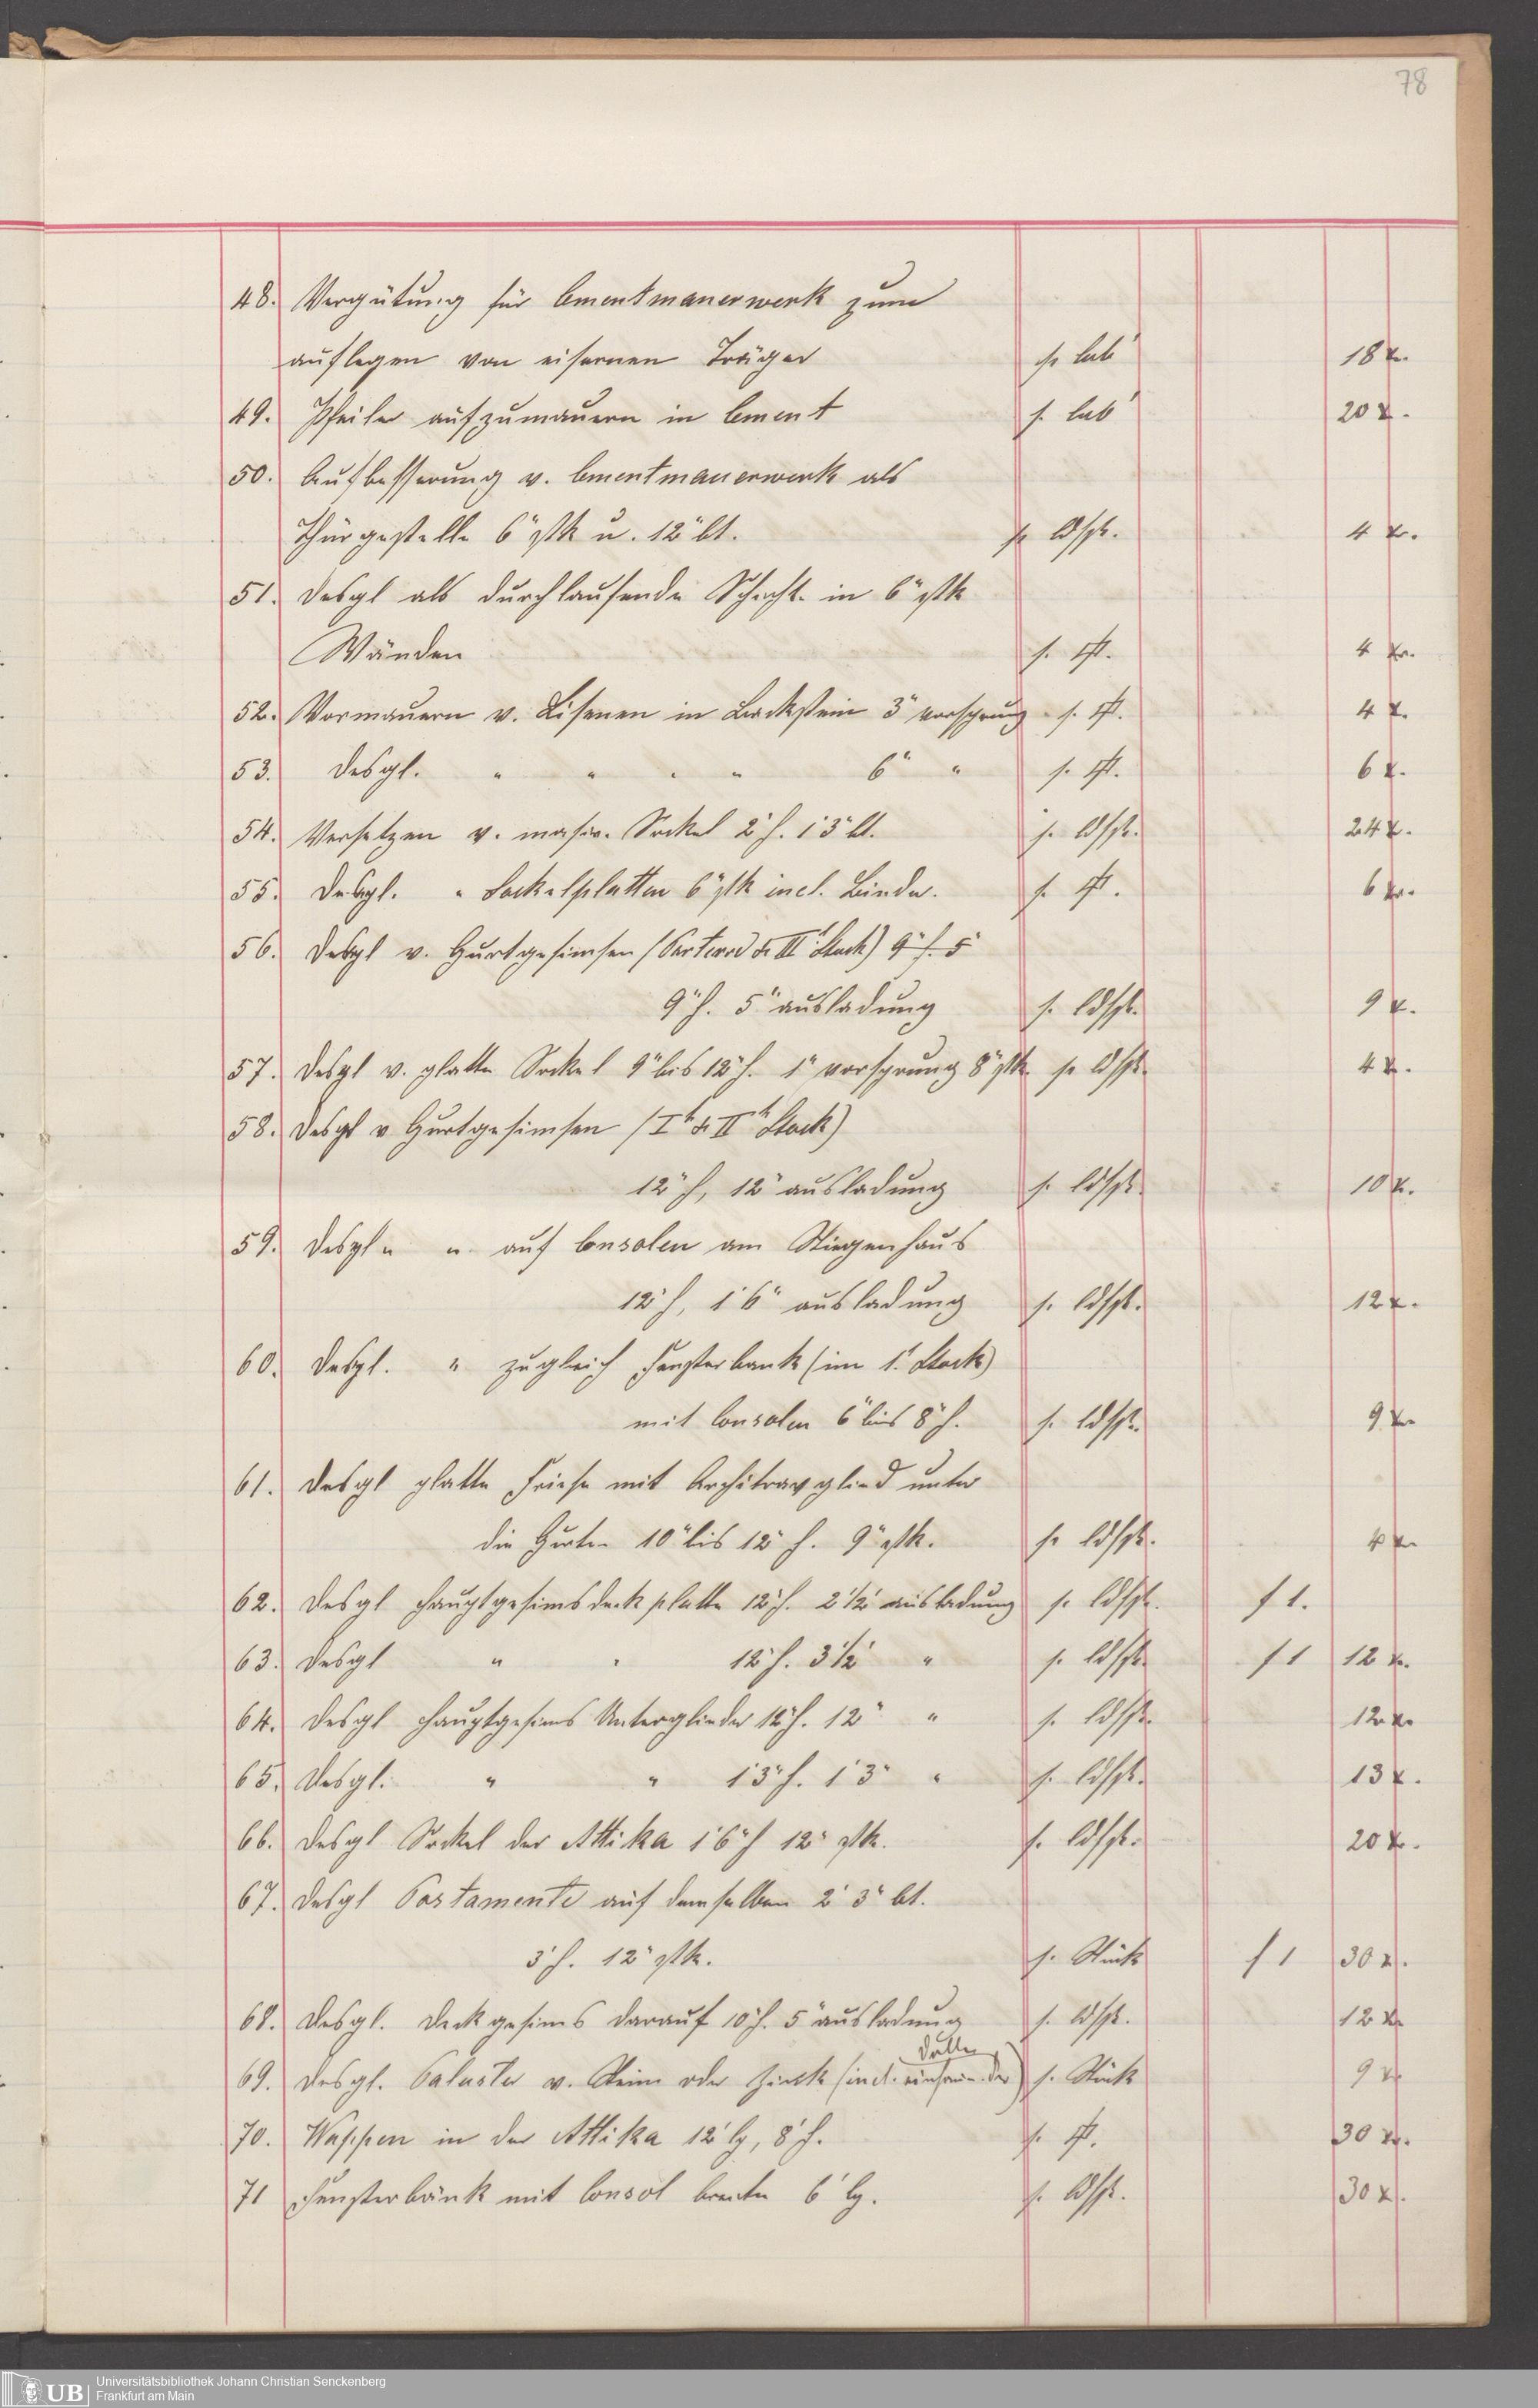 78
48. Vergütung für Cementmauerwerk zum
auflegen von eisernen Träger p. Cub' 18 x.
49. Pfeiler aufzumauern in Cement p. Cub' 20 x.
50. Aufbesserung v. Cementmauerwerk als
Thürgestelle 6" stk u. 12" bt. p. ldsch. 4 x.
51. desgl als durchlaufende Schicht in 6" stk
Wänden p. 4 x.
52. Vormauern v. Lisenen in Backstein 3" vorsprung p. 4 x.
53. desgl. " " " " 6" " p. 6 x.
54. Versetzen v. masiv. Sockel 2' h. 1'3" bt. p. ldsch. 24 x.
55. desgl. " Sockelplatten 6" stk incl. Binder. p. 6 x.
56. desgl v. Gurtgesimsen (Parterre & IIt Stock) 9" h. 5"
9" h. 5" ausladung p. ldsch. 9 x.
57. desgl v. glatte Sockel 9" bis 12" h. 1" vorsprung 8" stk p. ldsch. 4 x.
58. desgl v Gurtgesimsen (It & IIt Stock)
12" h, 12" ausladung p. ldsch. 10 x.
59. desgl " " auf Consolen am Stiegenhaus
12" h, 1'6" ausladung p. ldsch. 12 x.
60. desgl. " zugleich Fensterbank (im 1t Stock)
mit Consolen 6" bis 8" h. p. ldsch. 9 x.
61. desgl glatte Friese mit Architravglied unter
die Gurten 10" bis 12" h. 9" stk. p. ldsch. 4 x.
62. desgl Hauptgesimsdeckplatte 12" h. 2 1/2' ausladung p. ldsch. f 1.
63. desgl " " 12" h. 3 1/2' " p. ldsch. f 1 12 x.
64. desgl Hauptgesims Unterglieder 12" h. 12" " p. ldsch. 12 x.
65. desgl. " " 13" h. 13" " p. ldsch. 13 x.
66. desgl Sockel der Attika 1'6" h 12" stk. p. ldsch. 20 x.
67. desgl Postamente auf demselben 2' 3" bt.
3' h. 12" stk. p. Stück f 1 30 x.
68. desgl. Deckgesims darauf 10" h. 5" ausladung p. ldsch. 12 x
69. desgl. Baluster v. Stein oder Zinck (incl. der) p. Stück 9 x
70. Wappen in der Attika 12' lg, 8' h. p. 30 x.
71 Fensterbänk mit Consol breite 6' lg. p. ldsch. 30 x.
Universitätsbibliothek Johann Christian Senckenberg
Frankfurt am Main
UB